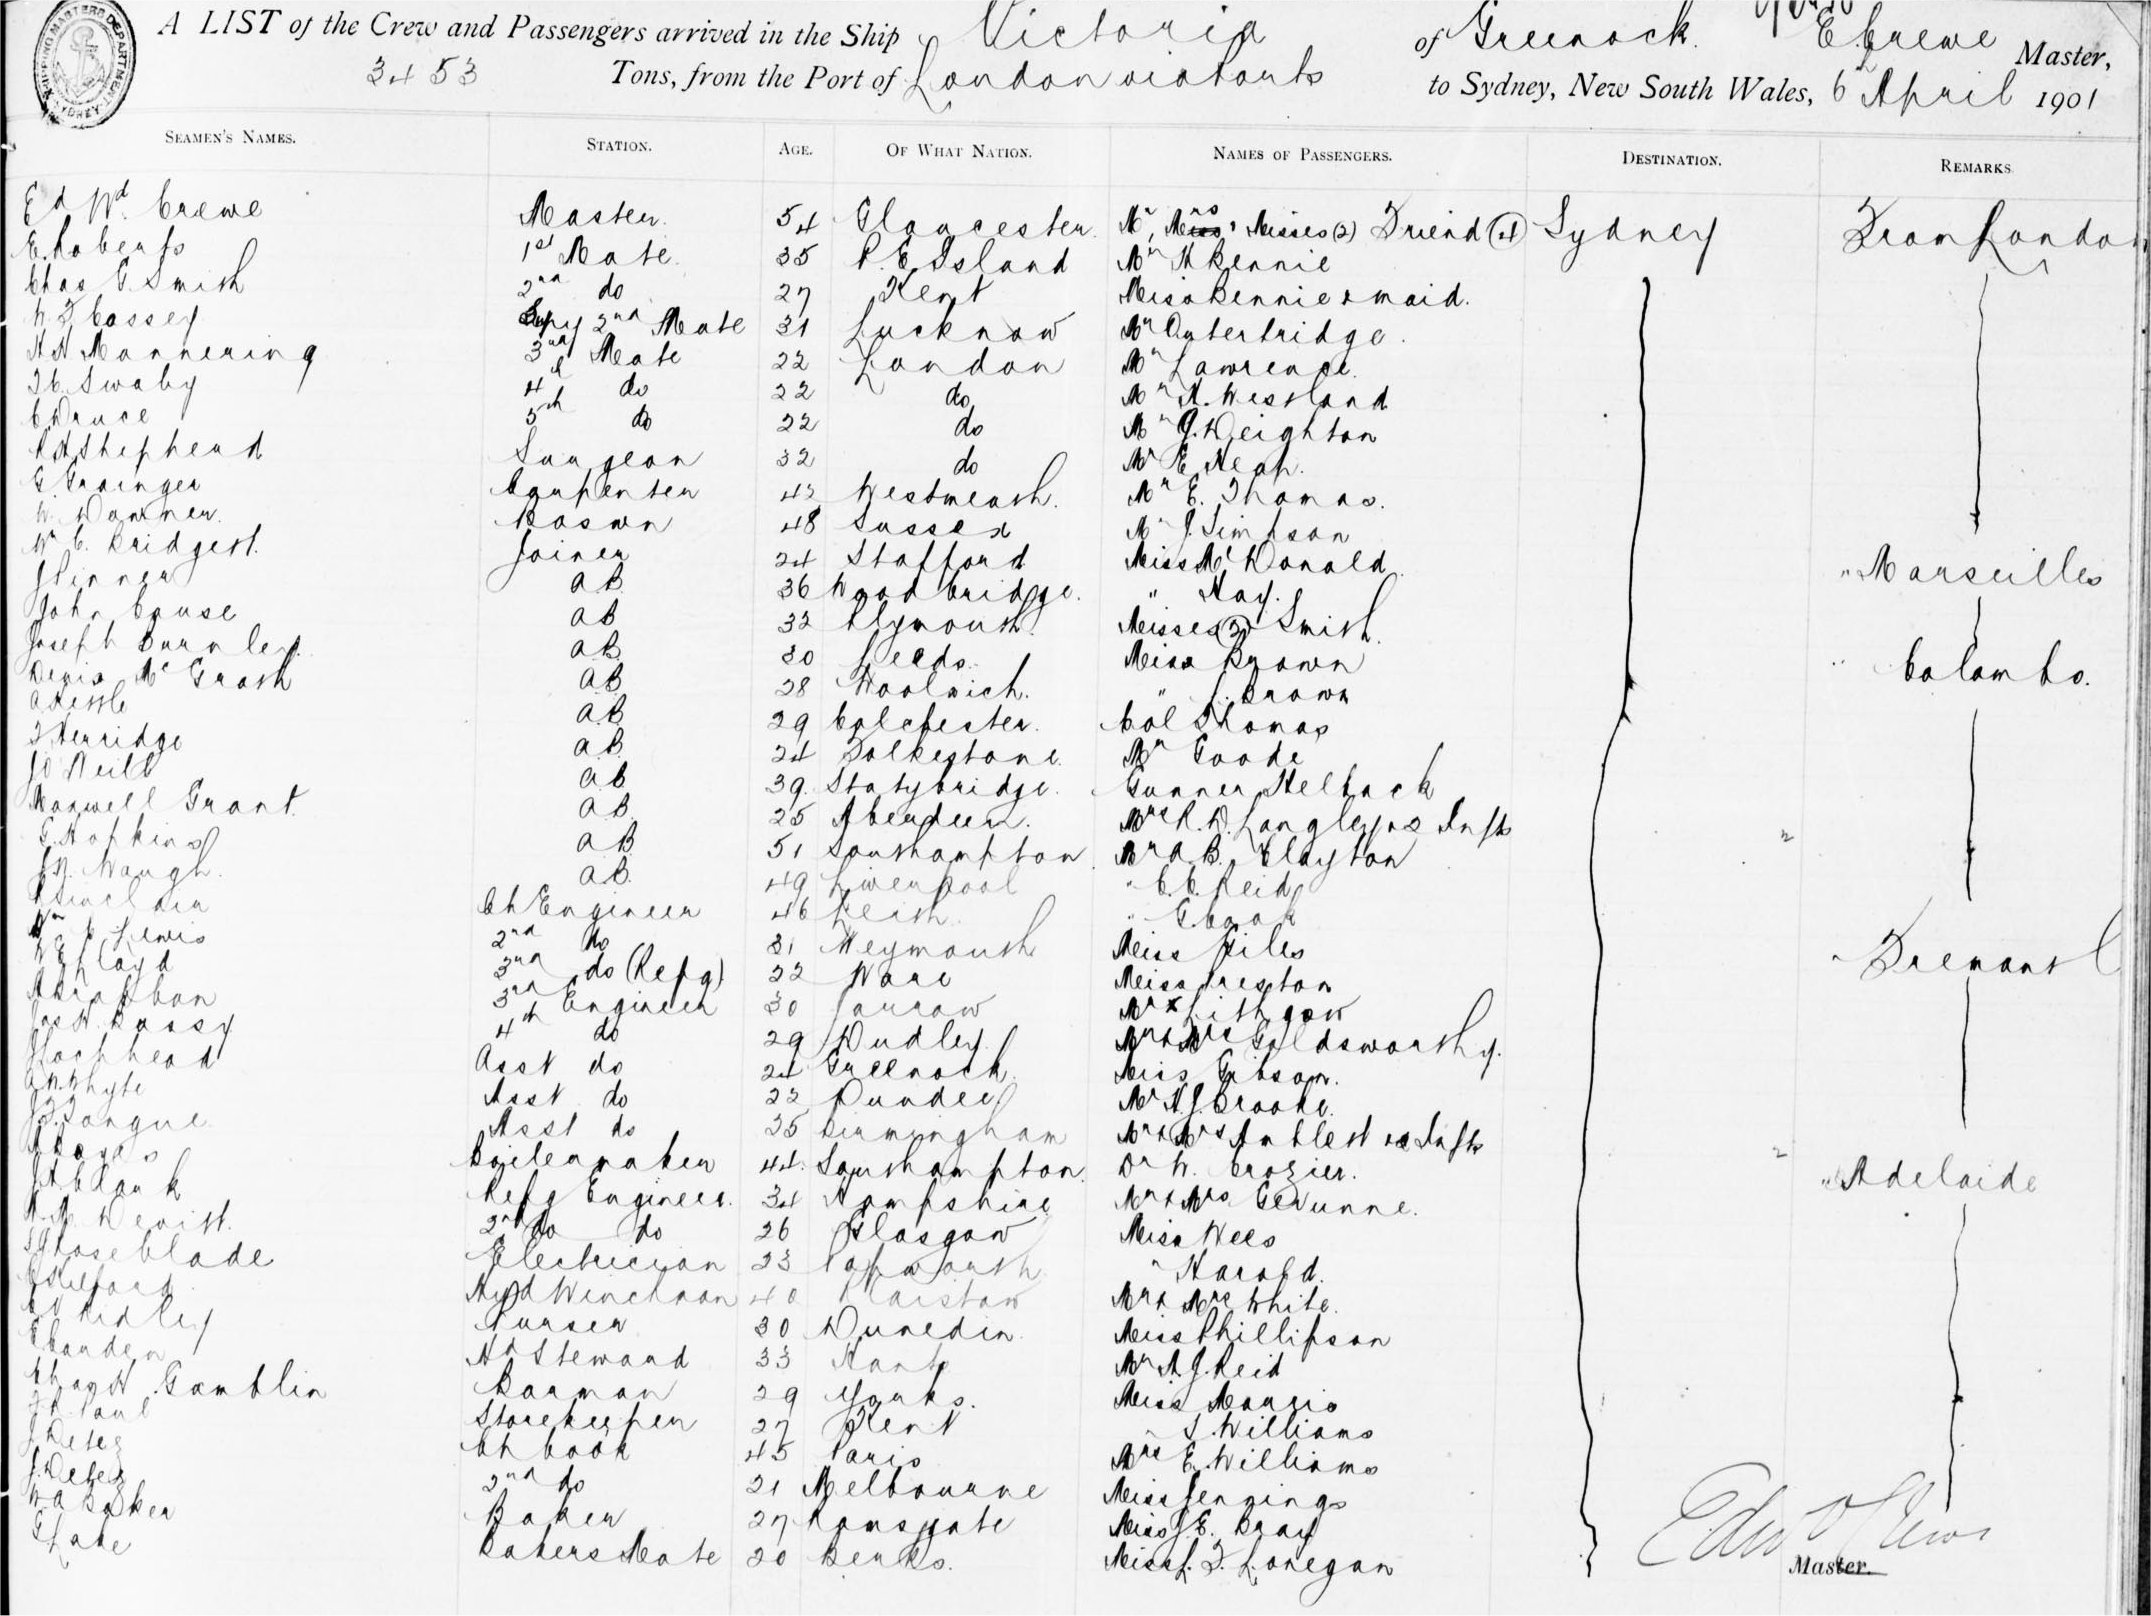 A LIST of the Crew and Passengers arrived in the Ship Victoria of Greenock. E. Crewe Master,
3453 Tons, from the Port of London via ports to Sydney, New South Wales, 6th April 1901
SEAMEN'S NAMES. STATION. AGE. OF WHAT NATION. NAMES OF PASSENGERS. DESTINATION. REMARKS
Ed Wd. Crewe Master. 54 Gloucester. Mr, Mrs, Misses (2) Friend (4) Sydney From London
E. Roberts 1st Mate. 35 P. E. Island Mr H Rennie
Chas G. Smith 2nd do 27 Kent Miss Rennie & maid.
W F Cossey Supy 2nd Mate 31 Lucknow Mr Outertridge.
H N Mannering 3rd Mate 22 London Mr Lawrence.
Swaby 4th do 22 do Mr H. Westland
C Druce 5th do 22 do Mr J. Deighton
R H Shepherd Surgeon 32 do Mr E. Heah.
G Grainger Carpenter 43 Westmeath. Mr E. Thomas.
W. Downer. Boswn 48 Sussex Mr J. Simpson
Wm C. Bridgest. Joiner 24 Stafford Miss McDonald.
J Pinner AB 36 Woodbridge. " Hay. " Marseilles
John Couse AB 32 Plymouth. Misses (2) Smith.
Joseph Burnley. AB 30 Leeds. Miss Brown " Colombo.
Denis McGrath AB 28 Woolwich. " J. Brown
AB 29 Colchester. Col Thomas
T Herridge AB 24 Folkestone. Mr Goode
J O'Neill AB 39. Stalybridge. Gunner Helback
Maxwell Grant. AB 25 Aberdeen. Mrs R. D. Langley & 2 Infts 2
G. Hopkins AB 51 Southampton Mr A. B. Clayton
J N. Waugh. AB. 49 Liverpool " C. C. Reid
Sinclair Ch Engineer 46 Leith. " G. Cook
Wm Lewis 2nd do 31 Weymouth Miss Giles " Fremantle
W E Lloyd 3rd do (Refg) 22 Ware Miss Preston
3rd Engineer 30 Jarrow Mr Lithgow
Jas W. Bussy 4th do 29 Dudley. Mr & Mrs Goldsworthy.
J Lochhead Asst do 24 Greenock. Miss Gibson.
Whyte Asst do 23 Dundee Mr H J Brooke.
J F. Tongue Asst do 35 Birmingham Mr & Mrs Amblet & 2 Infts 2
Boilermaker 44. Southampton. Dr W. Crozier. " Adelaide
J H Clark Refg Engineer. 34 Hampshire Mr & Mrs Dunne.
2nd do do 26 Glasgow Miss Wees
Roseblade Electrician 23 Papworth " Harold.
Hyd Winchman 40 Plaistow Mr & Mrs White.
Ridley Purser 30 Dunedin. Miss Phillipson
Hd Steward 33 Hants Mr A. J. Reid
Chas H. Gamblin Barman 29 Yorks. Miss Morris
Paul Storekeeper 27 Kent " J. Williams
J Detez Ch Cook 45 Paris Mrs E. Williams
J. Detez 2nd do 21 Melbourne Miss Jennings
W A Baker Baker 27 Ramsgate Miss J. E. Bray
G Lake Bakers Mate 20 Berks. Miss L. F. Lonegan
Edwd Crewe
Master.